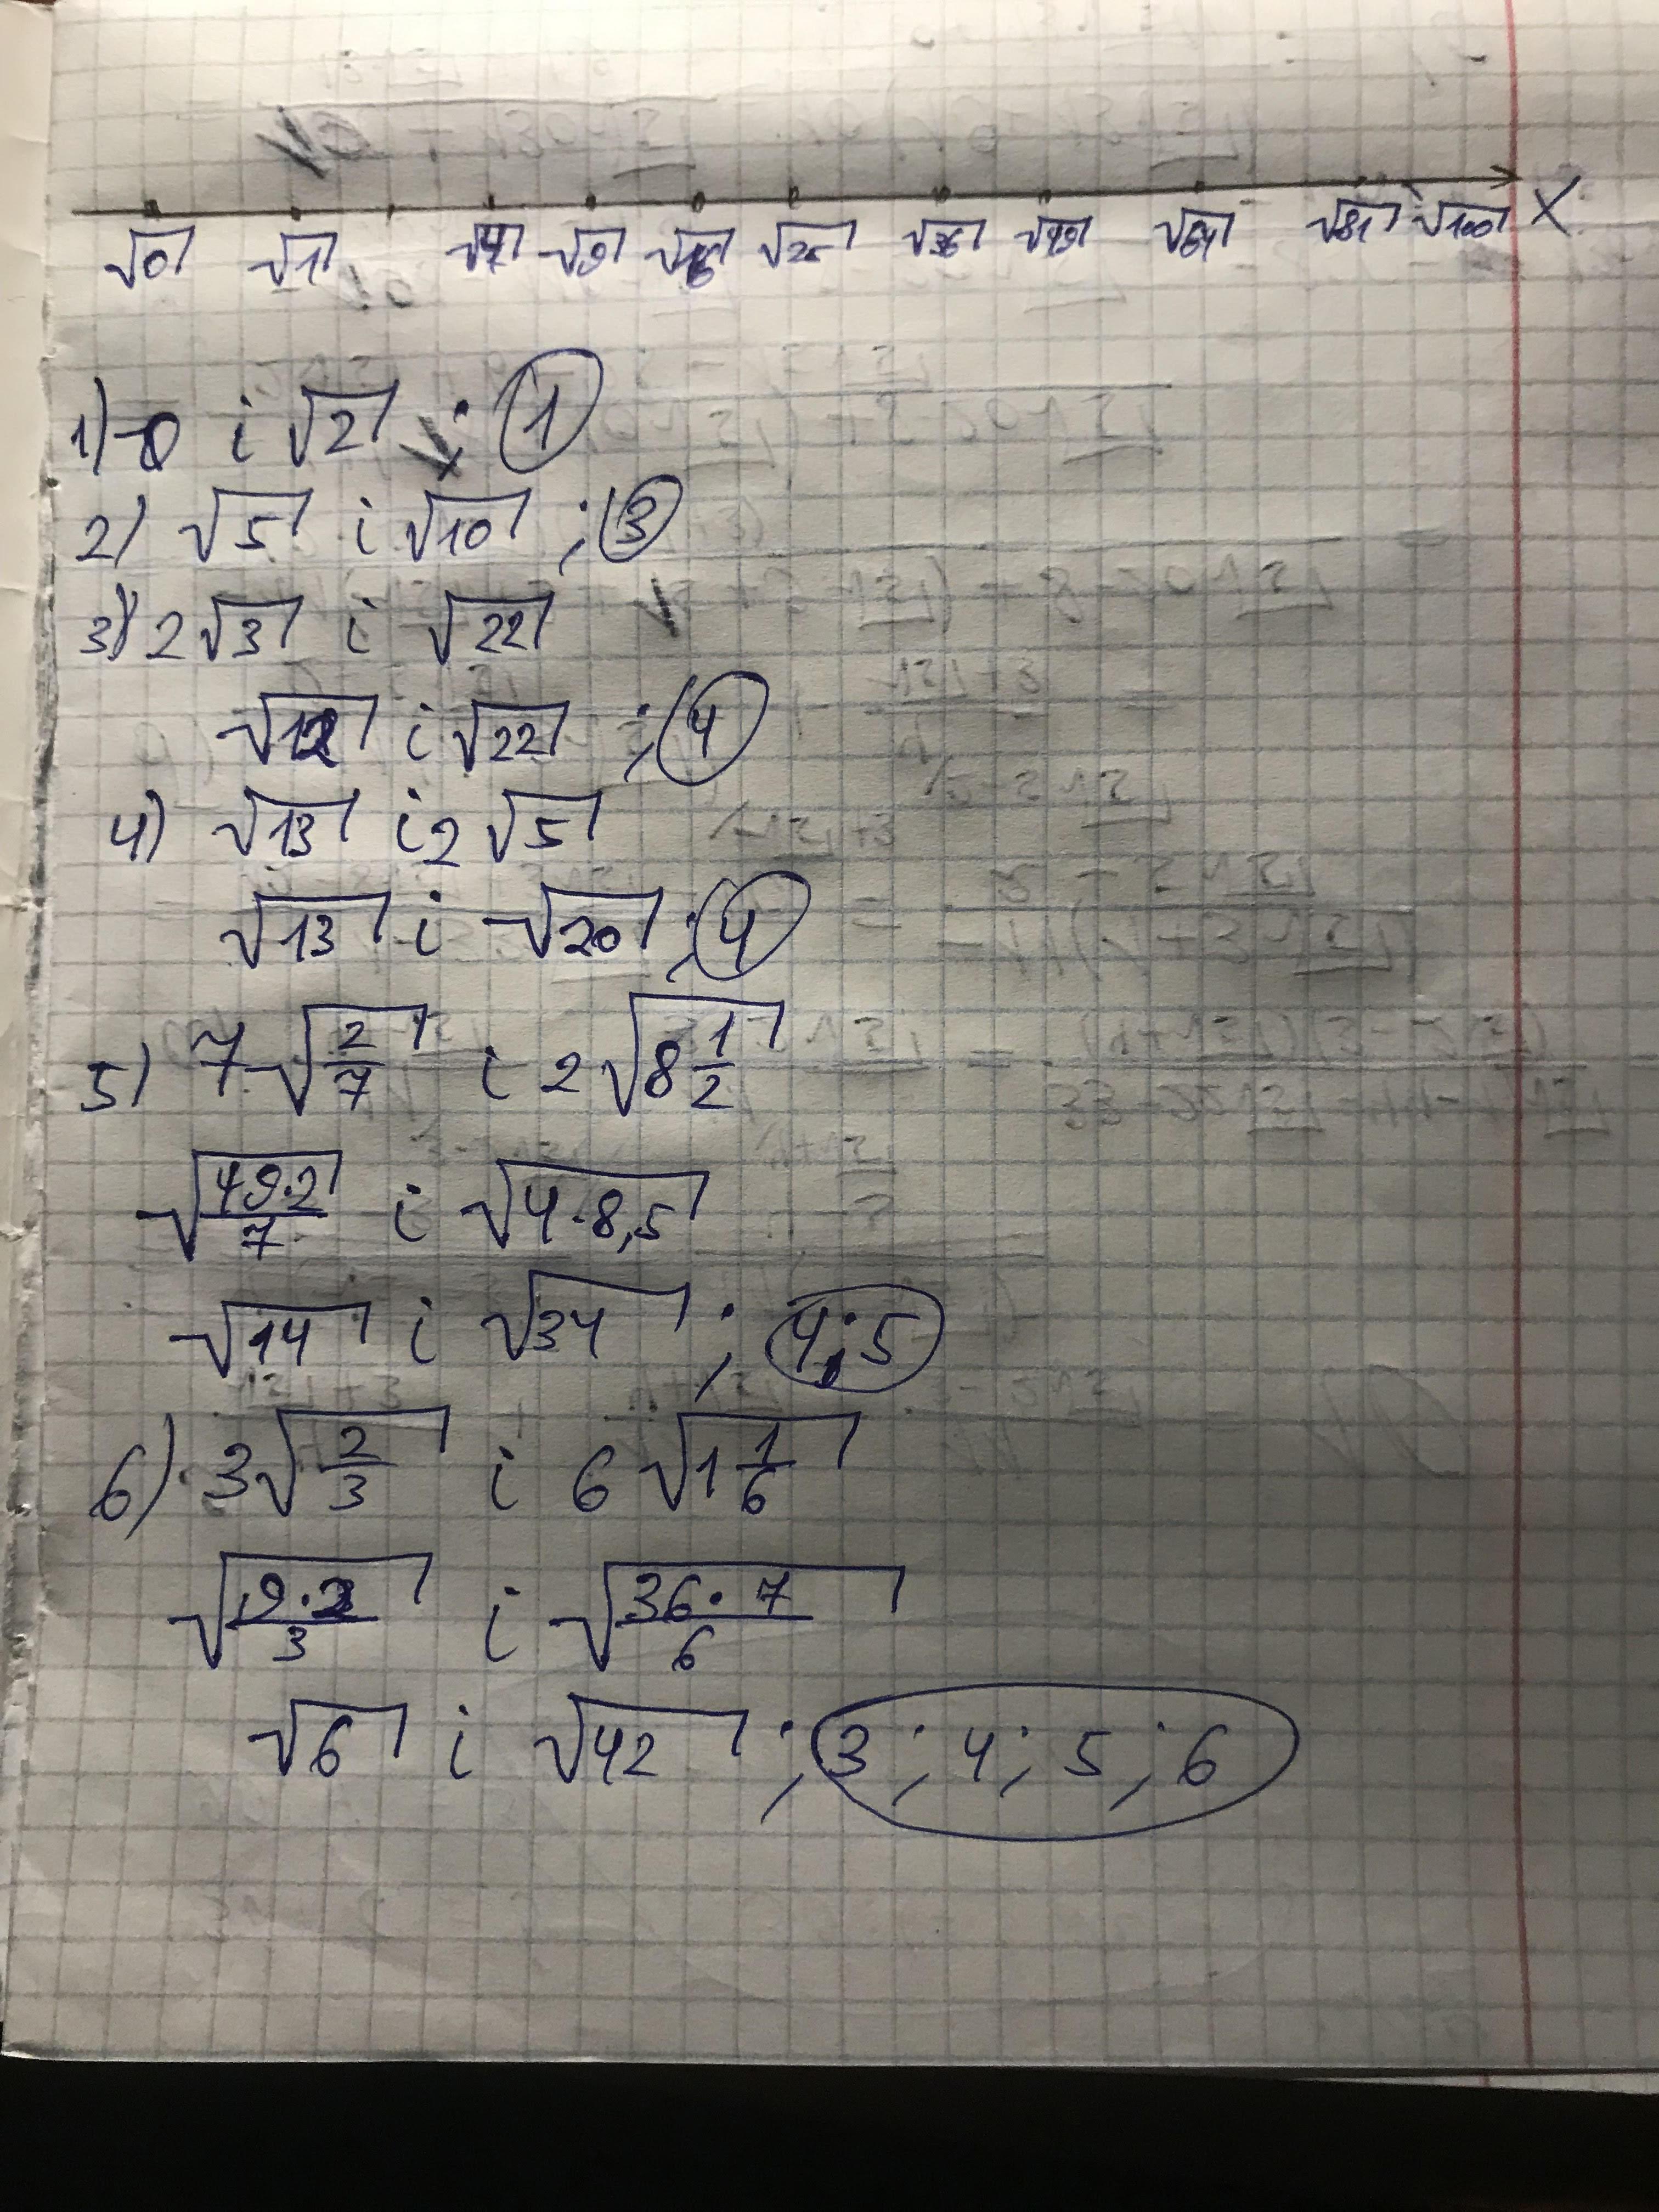 √0 √1 √4 √9 √16 √25 √36 √49 √64 √81 √100 X
1) 0 i √2 ; 1
2) √5 i √10 ; 3
3) 2√3 i √22
√12 i √22 ; 4
4) √13 i 2√5
√13 i √20 ; 4
5) 7√(2/7) i 2√(8 1/2)
√(49·2/7) i √(4·8,5)
√14 i √34 ; 4; 5
6) 3√(2/3) i 6√(1 1/6)
√(9·2/3) i √(36·7/6)
√6 i √42 ; 3; 4; 5; 6